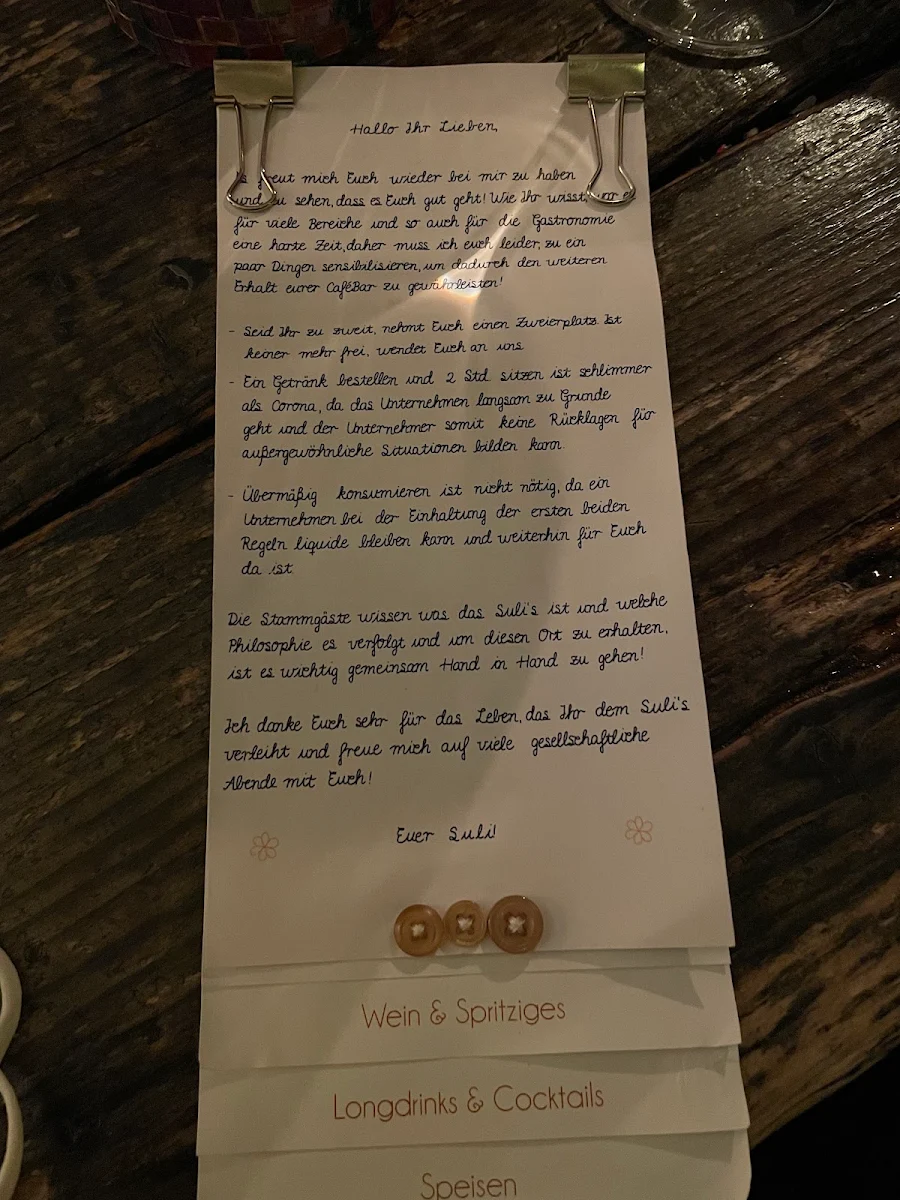 Hallo Ihr Lieben,
Es freut mich Euch wieder bei mir zu haben
und zu sehen, dass es Euch gut geht! Wie Ihr wisst,
für viele Bereiche und so auch für die Gastronomie
eine harte Zeit, daher muss ich euch leider, zu ein
paar Dingen sensibilisieren, um dadurch den weiteren
Erhalt eurer CaféBar zu gewährleisten!
- Seid Ihr zu zweit, nehmt Euch einen Zweierplatz. Ist
keiner mehr frei, wendet Euch an uns.
- Ein Getränk bestellen und 2 Std. sitzen ist schlimmer
als Corona, da das Unternehmen langsam zu Grunde
geht und der Unternehmer somit keine Rücklagen für
außergewöhnliche Situationen bilden kann.
- Übermäßig konsumieren ist nicht nötig, da ein
Unternehmen bei der Einhaltung der ersten beiden
Regeln liquide bleiben kann und weiterhin für Euch
da ist.
Die Stammgäste wissen was das Suli's ist und welche
Philosophie es verfolgt und um diesen Ort zu erhalten,
ist es wichtig gemeinsam Hand in Hand zu gehen!
Ich danke Euch sehr für das Leben, das Ihr dem Suli's
verleiht und freue mich auf viele gesellschaftliche
Abende mit Euch!
Euer Suli!
Wein & Spritziges
Longdrinks & Cocktails
Speisen